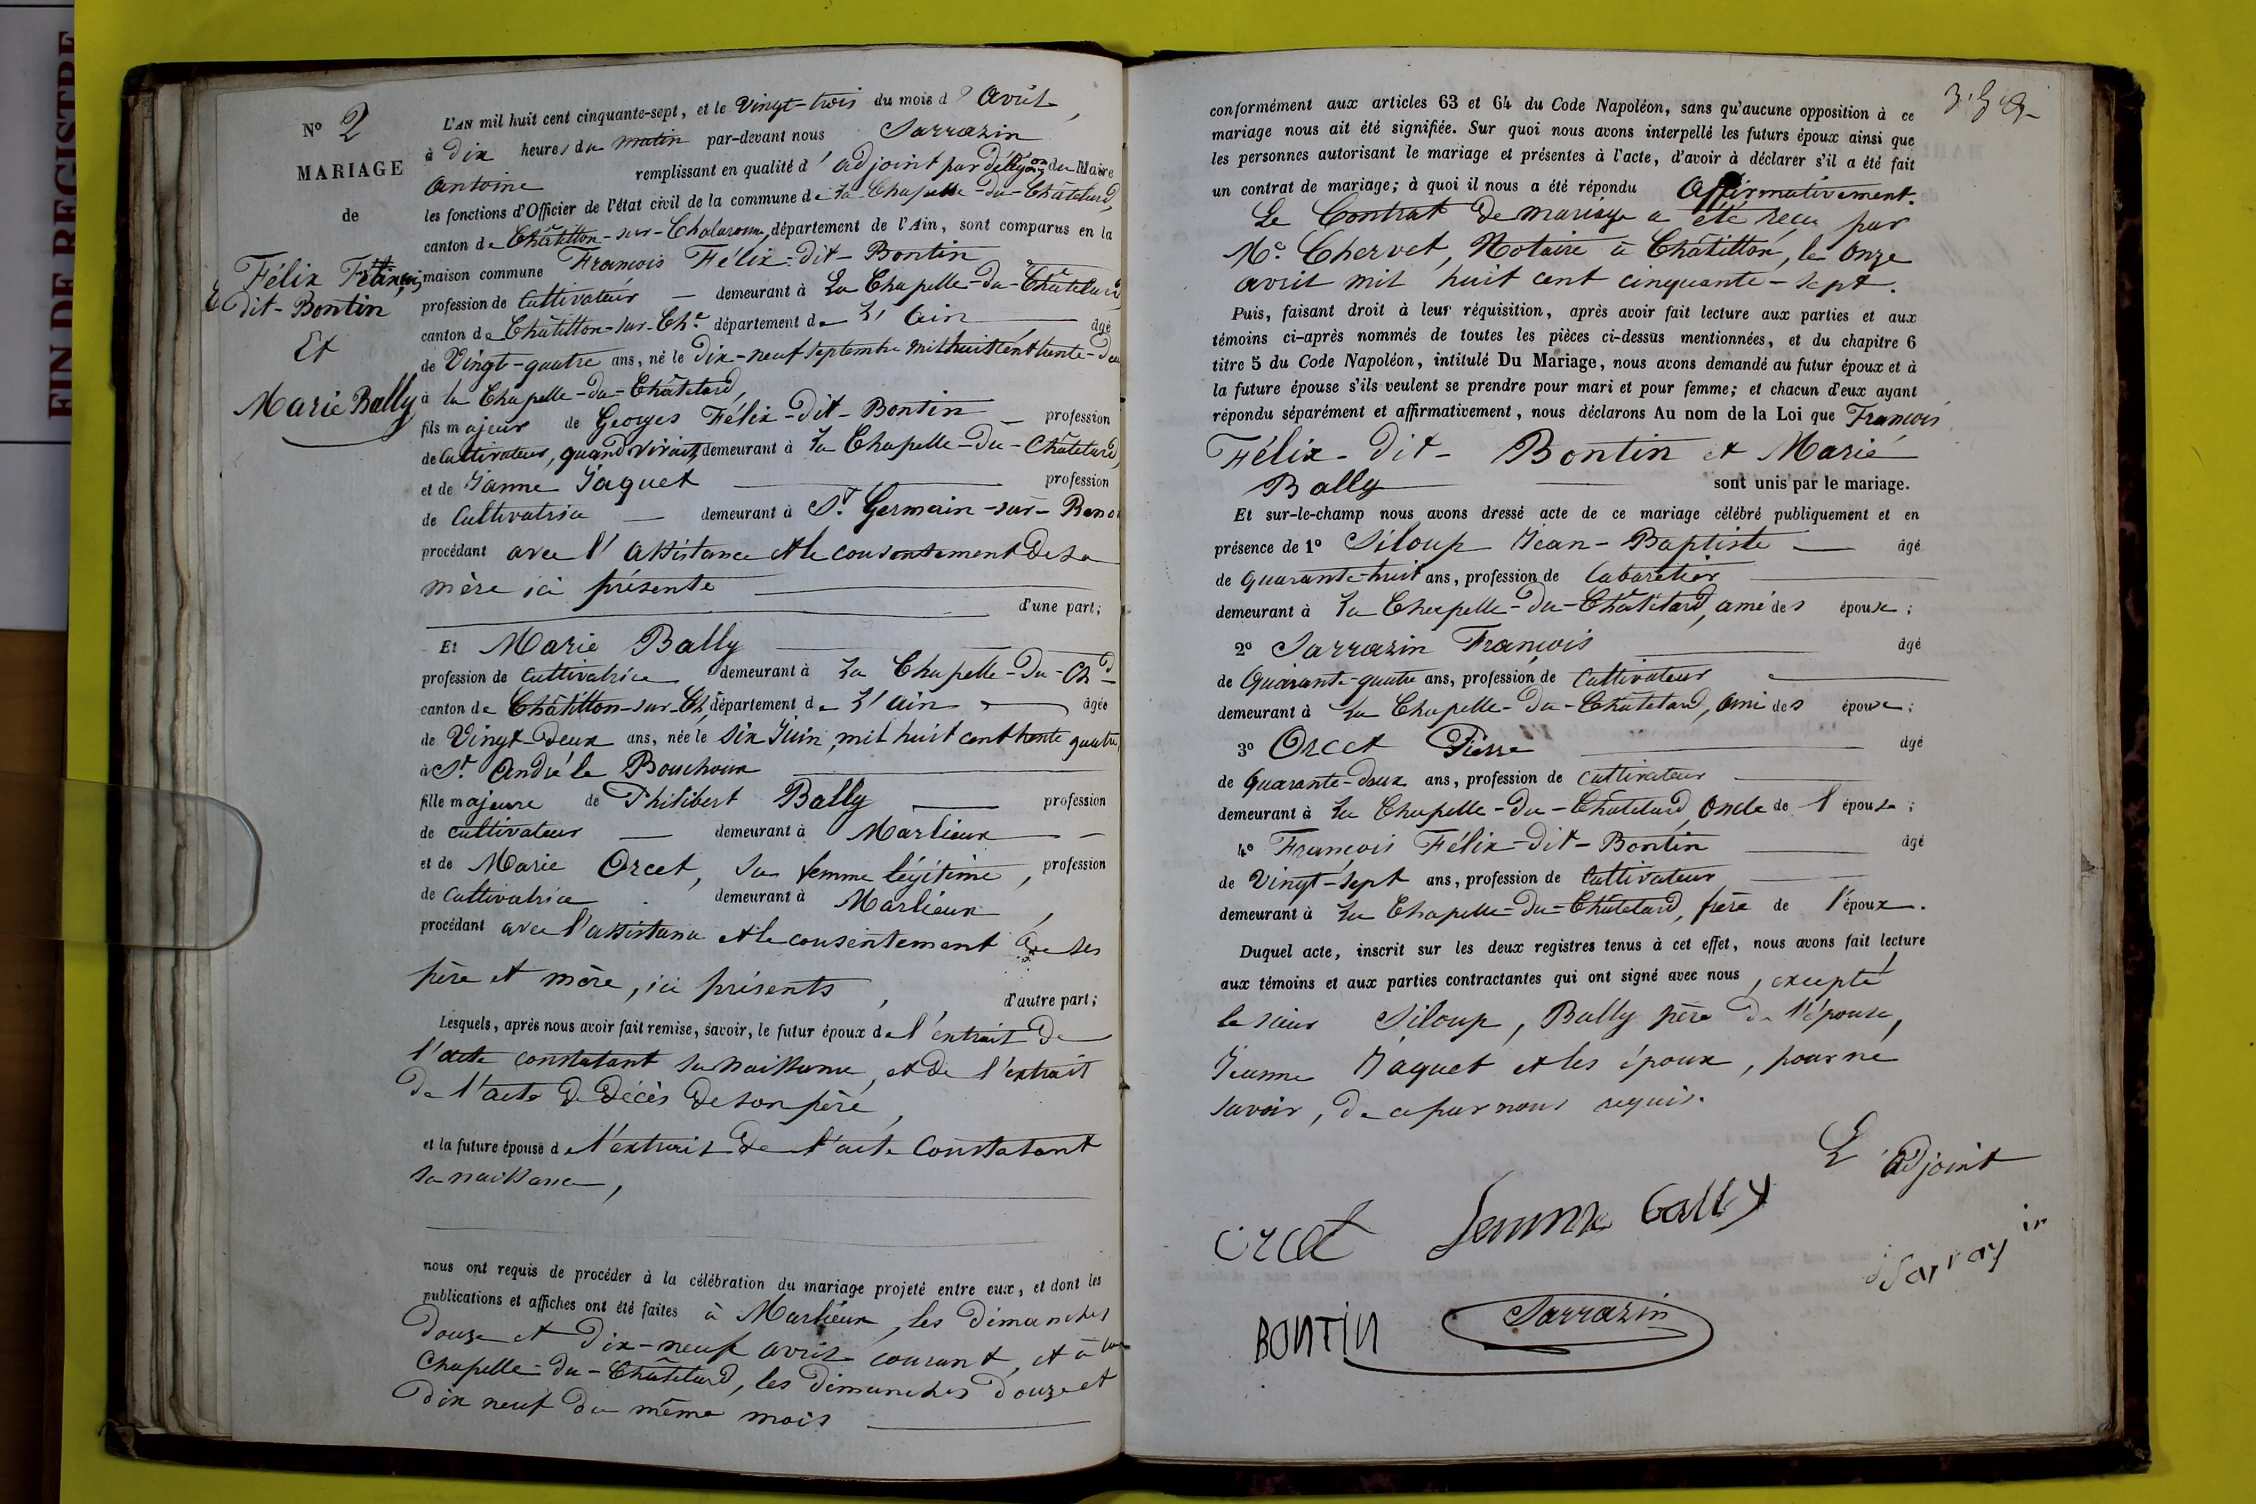 FIN DE REGISTRE
N° 2
MARIAGE
de
Félix François
dit-Bontin
Et
Marie Bally
L'AN mil huit cent cinquante-sept, et le vingt-trois du mois d'avril
à dix heures du matin par-devant nous Sarrazin
Antoine remplissant en qualité d'adjoint par délég.on du Maire
les fonctions d'Officier de l'état civil de la commune de La Chapelle-du-Châtelard,
canton de Châtillon-sur-Chalaronne, département de l'Ain, sont comparus en la
maison commune François Félix-dit-Bontin
profession de Cultivateur demeurant à La Chapelle-du-Châtelard
canton de Châtillon-sur-Ch.e département de L'Ain âgé
de Vingt-quatre ans, né le dix-neuf septembre mil huit cent trente-deu
à la Chapelle-du-Châtelard,
fils majeur de Georges Félix-dit-Bontin profession
de Cultivateur, quand vivait, demeurant à La Chapelle-du-Châtelard,
et de Janne Jaquet profession
de Cultivatrice demeurant à St. Germain-sur-Renon
procédant avec l'assistance et le consentement de sa
mère ici présente
d'une part;
Et Marie Bally
profession de Cultivatrice demeurant à La Chapelle-du-Chd
canton de Châtillon-sur-Ch, département de L'Ain âgée
de Vingt-Deux ans, née le six Juin, mil huit cent trente quatre,
à St. André le Bouchoux
fille majeure de Philibert Bally profession
de cultivateur demeurant à Marlieux
et de Marie Orcet, sa femme légitime, profession
de cultivatrice demeurant à Marlieux,
procédant avec l'assistance et le consentement de ses
père et mère, ici présents, d'autre part;
Lesquels, après nous avoir fait remise, savoir, le futur époux de l'extrait de
l'acte constatant sa naissance, et de l'extrait
de l'acte de décès de son père,
et la future épouse de l'extrait de l'acte constatant
sa naissance,
nous ont requis de procéder à la célébration du mariage projeté entre eux, et dont les
publications et affiches ont été faites à Marlieux, les dimanches
douze et dix-neuf avril courant, et à la
Chapelle-du-Châtelard, les dimanches douze et
dix neuf du même mois
conformément aux articles 63 et 64 du Code Napoléon, sans qu'aucune opposition à ce
mariage nous ait été signifiée. Sur quoi nous avons interpellé les futurs époux ainsi que
les personnes autorisant le mariage et présentes à l'acte, d'avoir à déclarer s'il a été fait
un contrat de mariage; à quoi il nous a été répondu Affirmativement.
Le Contrat de mariage a été reçu par
Me. Chervet, Notaire à Châtillon, le onze
avril mil huit cent cinquante-sept.
Puis, faisant droit à leur réquisition, après avoir fait lecture aux parties et aux
témoins ci-après nommés de toutes les pièces ci-dessus mentionnées, et du chapitre 6
titre 5 du Code Napoléon, intitulé Du Mariage, nous avons demandé au futur époux et à
la future épouse s'ils veulent se prendre pour mari et pour femme; et chacun d'eux ayant
répondu séparément et affirmativement, nous déclarons Au nom de la Loi que François
Félix-Dit-Bontin et Marie
Bally sont unis par le mariage.
Et sur-le-champ nous avons dressé acte de ce mariage célébré publiquement et en
présence de 1° Siloup Jean-Baptiste âgé
de quarante-huit ans, profession de Cabaretier
demeurant à La Chapelle-du-Châtelard, ami des époux;
2° Sarrazin François âgé
de Quarante-quatre ans, profession de Cultivateur
demeurant à La Chapelle-du-Châtelard, ami des époux;
3° Orcet Pierre âgé
de Quarante-deux ans, profession de Cultivateur
demeurant à La Chapelle-du-Châtelard, Oncle de l'épouse;
4° François Félix-dit-Bontin âgé
de Vingt-sept ans, profession de Cultivateur
demeurant à La Chapelle-du-Châtelard, frère de l'époux.
Duquel acte, inscrit sur les deux registres tenus à cet effet, nous avons fait lecture
aux témoins et aux parties contractantes qui ont signé avec nous, excepté
le sieur Siloup, Bally père de l'épouse,
Jeanne Jaquet et les époux, pour ne
savoir, de ce par nous requis.
L'adjoint
orcet femme bally Sarrazin
BONTIN Sarrazin